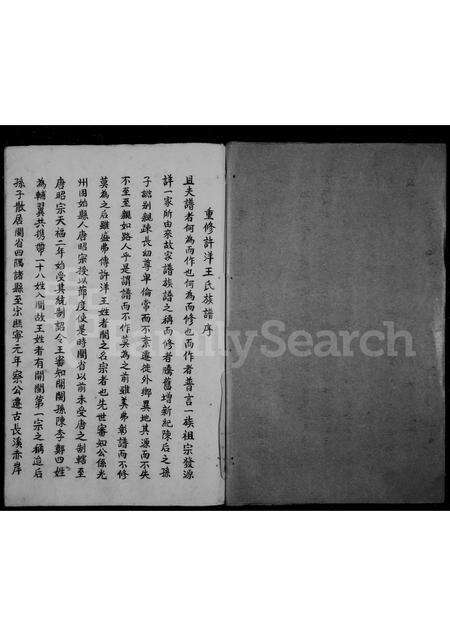 重修許洋王氏族譜序
且夫譜者何為而作也何為而修也而作者普言一族祖宗發源
詳一家所由來故家譜族譜之稱而修者謄舊增新紀陳后之孫
子諗别親疎長幼尊卑倫常而不紊遷徙外鄉異地其源而不失
不至至親如路人乎是謂譜而不作莫為之前雖美弗彰譜而不修
莫為之后雖盛弗傳許洋王姓者閩之名宗者也先世審知公係光
州固始縣人唐昭宗授以節度使是時閩省以前未受唐之制轄至
唐昭宗天福二年始受其統制詔令王審知開閩孫陳李鄭四姓
為輔翼共携帶一十八姓入閩故王姓者有開閩第一宗之稱迨后
孫子散居閩省四隅諸縣至宋熙寧元年察公遷古長溪赤岸
FamilySearch